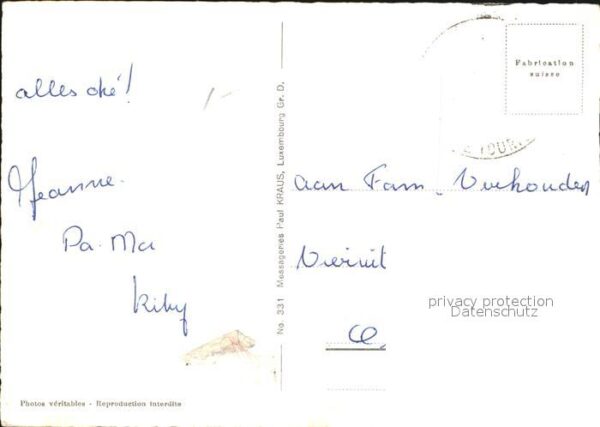 alles oké!
Jeanne.
Pa. Ma
Kiby
No. 331 Messageries Paul KRAUS, Luxembourg Gr. D.
Fabrication
suisse
aan Fam.
privacy protection
Datenschutz
Photos véritables - Reproduction interdite